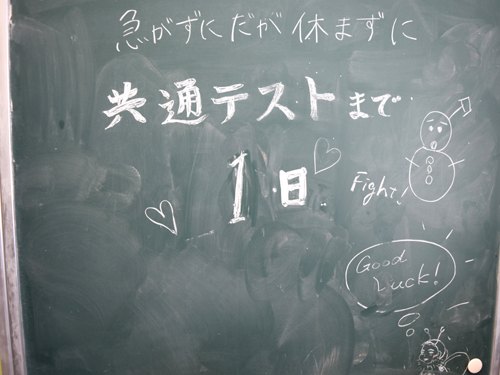 急がずにだが休まずに
共通テストまで
1日
Fight!
Good
Luck!